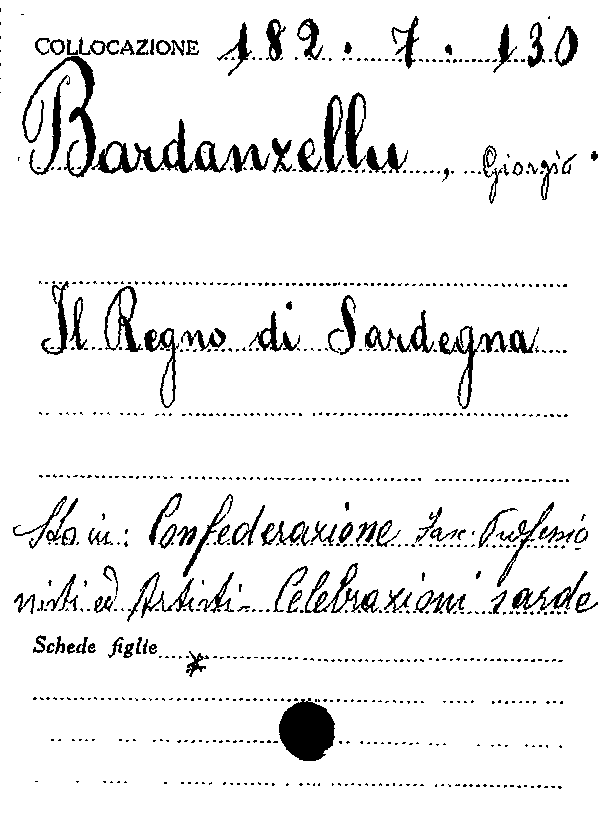 COLLOCAZIONE 182. 7. 130
Bardanzellu, Giorgio.
Il Regno di Sardegna
Sta in: Confederazione Fasc. Professio
nisti ed Artisti- Celebrazioni sarde
Schede figlie
*